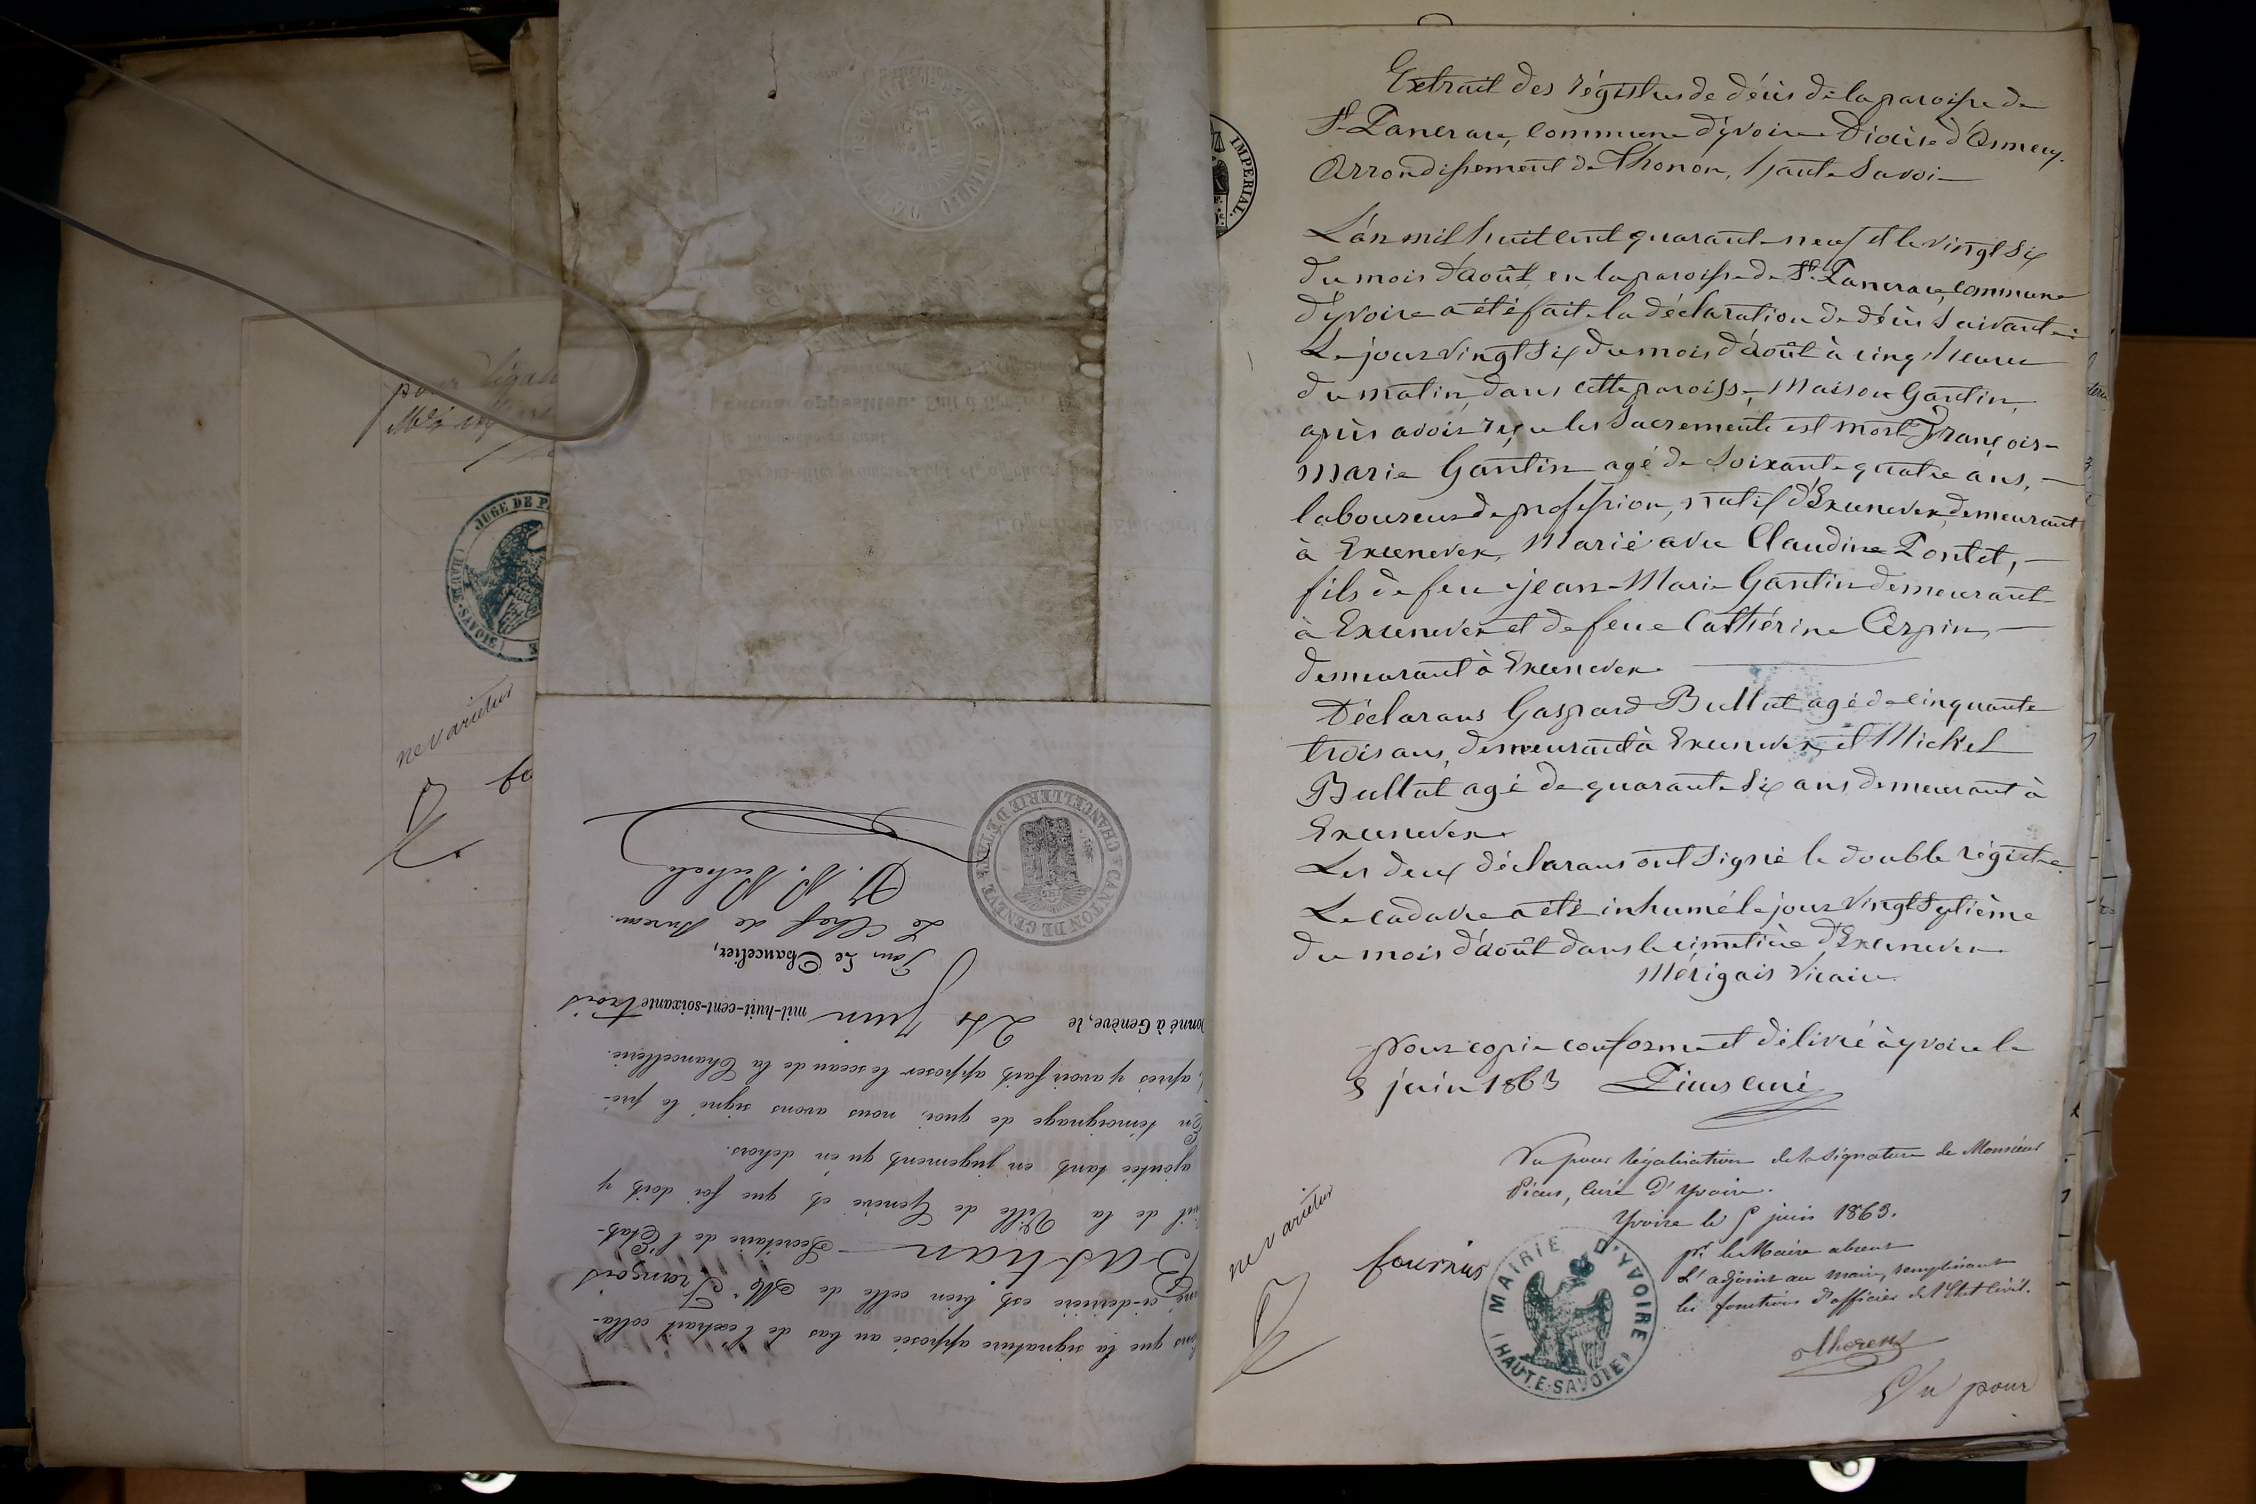 Extrait des régistres de décès de la paroisse de
St Pancrace, commune d'yvoire Diocèse d'Annecy.
Arrondissement de Thonon, haute Savoie
L'an mil huit cent quarante neuf et le vingt six
du mois d'août en la paroisse de St Pancrace, commune
d'yvoire a été faite la déclaration de décès suivante:
Le jour vingt six du mois d'août à cinq heures
du matin, dans cette paroisse, Maison Gantin,
après avoir reçu les Sacrements est mort François-
Marie Gantin agé de Soixante quatre ans, —
laboureur de profession, natif d'Excenevex, demeurant
à Excenevex, Marié avec Claudine Pontet, —
fils de feu jean-Marie Gantin demeurant
à Excenevex et de feue Cathérine Crepin, —
demeurant à Excenevex
Déclarans Gaspard Bullat agé de cinquante
trois ans, demeurant à Excenevex, et Michel
Bullat agé de quarante Six ans demeurant à
Excenevex
Les deux déclarans ont signé le double régistre.
Le cadavre a été inhumé le jour vingt Septième
du mois d'août dans le cimetière d'Excenevex
Mérigais Vicaire
pour copie conforme et délivré à yvoire le
5 juin 1863 Picus curé
Vu pour légalisation de la signature de Monsieur
Picus, curé d'Yvoire.
Yvoire le 5 juin 1863.
pr le Maire absent
L'adjoint au maire, remplissant
les fonctions d'officier de l'Etat Civil.
Thorens
Vu pour
ne varietur
fournier
MAIRIE D'YVOIRE
(HAUTE-SAVOIE)
IMPERIAL.
que la signature apposée au bas de l'extrait colla-
ci-derrière est bien celle de Mr François
Bastian — Secrétaire de l'Etat-
de la Ville de Genève et que foi doit y
ajoutée tant en jugement qu'en dehors.
En témoignage de quoi, nous avons signé le pré-
après y avoir fait apposer le sceau de la Chancellerie.
Donné à Genève, le 24 Juin mil-huit-cent-soixante trois
Pour Le Chancelier,
Le Chef de Bureau
CANTON DE GENÈVE
CHANCELLERIE D'ETAT
pour légali
JUGE DE P
(HAUTE-SAVOIE)
ne varietur
fo